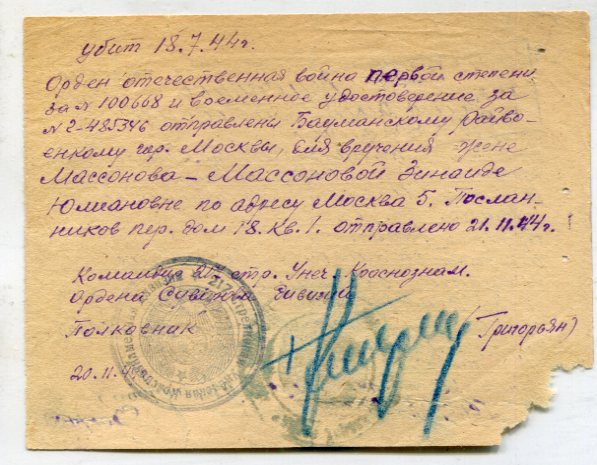 убит 18.7.44г.
Орден отечественная война первой степени
за № 100668 и временное удостоверение за
№ 2-485346 отправлены Бауманскому райво-
енкому гор. Москвы, для вручения жене
Массонова – Массоновой Зинаиде
Юлиановне по адресу Москва 5. Послан-
ников пер. дом 18. кв. 1. отправлено 21.11.44г.
217 стр. Унеч. Краснознам.
Ордена Суворова дивизии
Полковник (Григорьян)
20.11.